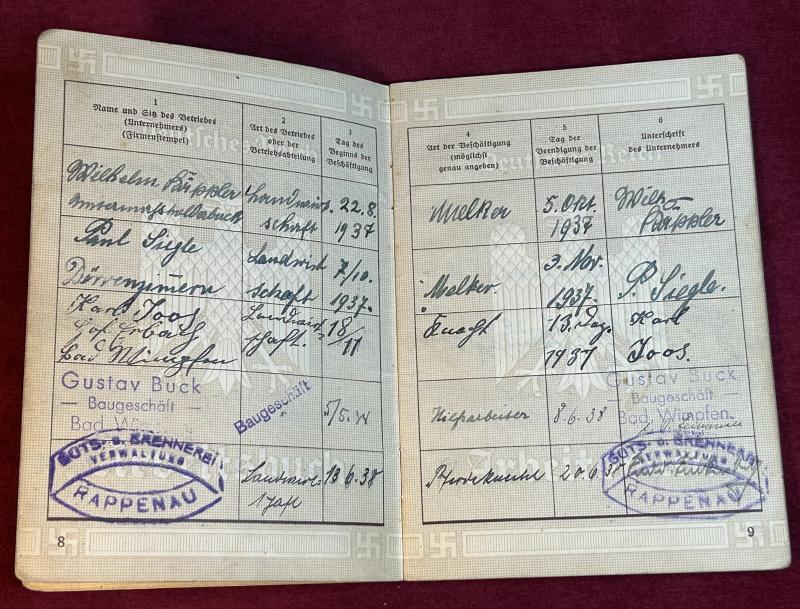 1
Name und Sitz des Betriebes
(Unternehmers)
(Firmenstempel)
2
Art des Betriebes
oder der
Betriebsabteilung
3
Tag des
Beginns der
Beschäftigung
Wilhelm Käppler
Landwirt-
schaft
22.8.
1937
Paul Siegle
Dörrenzimmern
Landwirt
schaft
7/10.
1937.
Karl Joos
Hof Erbach
Bad Wimpfen
Landwirt-
schaft.
18/
11
Gustav Buck
— Baugeschäft —
Bad Wimpfen
Baugeschäft
5/5.
GUTS- u. BRENNEREI
VERWALTUNG
RAPPENAU
Landwirt-
schaft
6.38
8
4
Art der Beschäftigung
(möglichst
genau angeben)
5
Tag der
Beendigung der
Beschäftigung
6
Unterschrift
des Unternehmers
Melker
5. Okt.
1937
Wilh.
Käppler
Melker.
3. Nov.
1937.
P. Siegle.
Knecht
13. Dez.
1937
Karl
Joos.
Hilfsarbeiter
8.6.38
Gustav Buck
— Baugeschäft —
Bad Wimpfen
Pferdeknecht
20.6.38
GUTS- u. BRENNEREI
VERWALTUNG
RAPPENAU
9
Deutsches Reich
Arbeitsbuch
Deutsches Reich
Arbeitsbuch